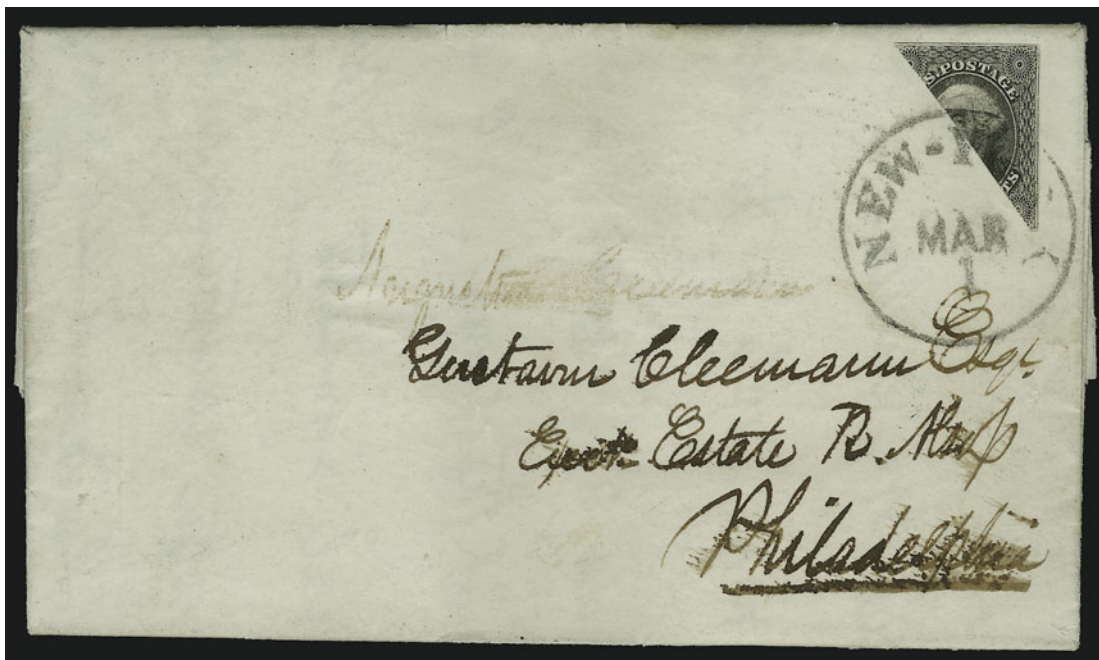 S. POSTAGE
TS
NEW-Y
MAR
1
Gustavus Cleemann Esqr.
Estate R.
Philadelphia